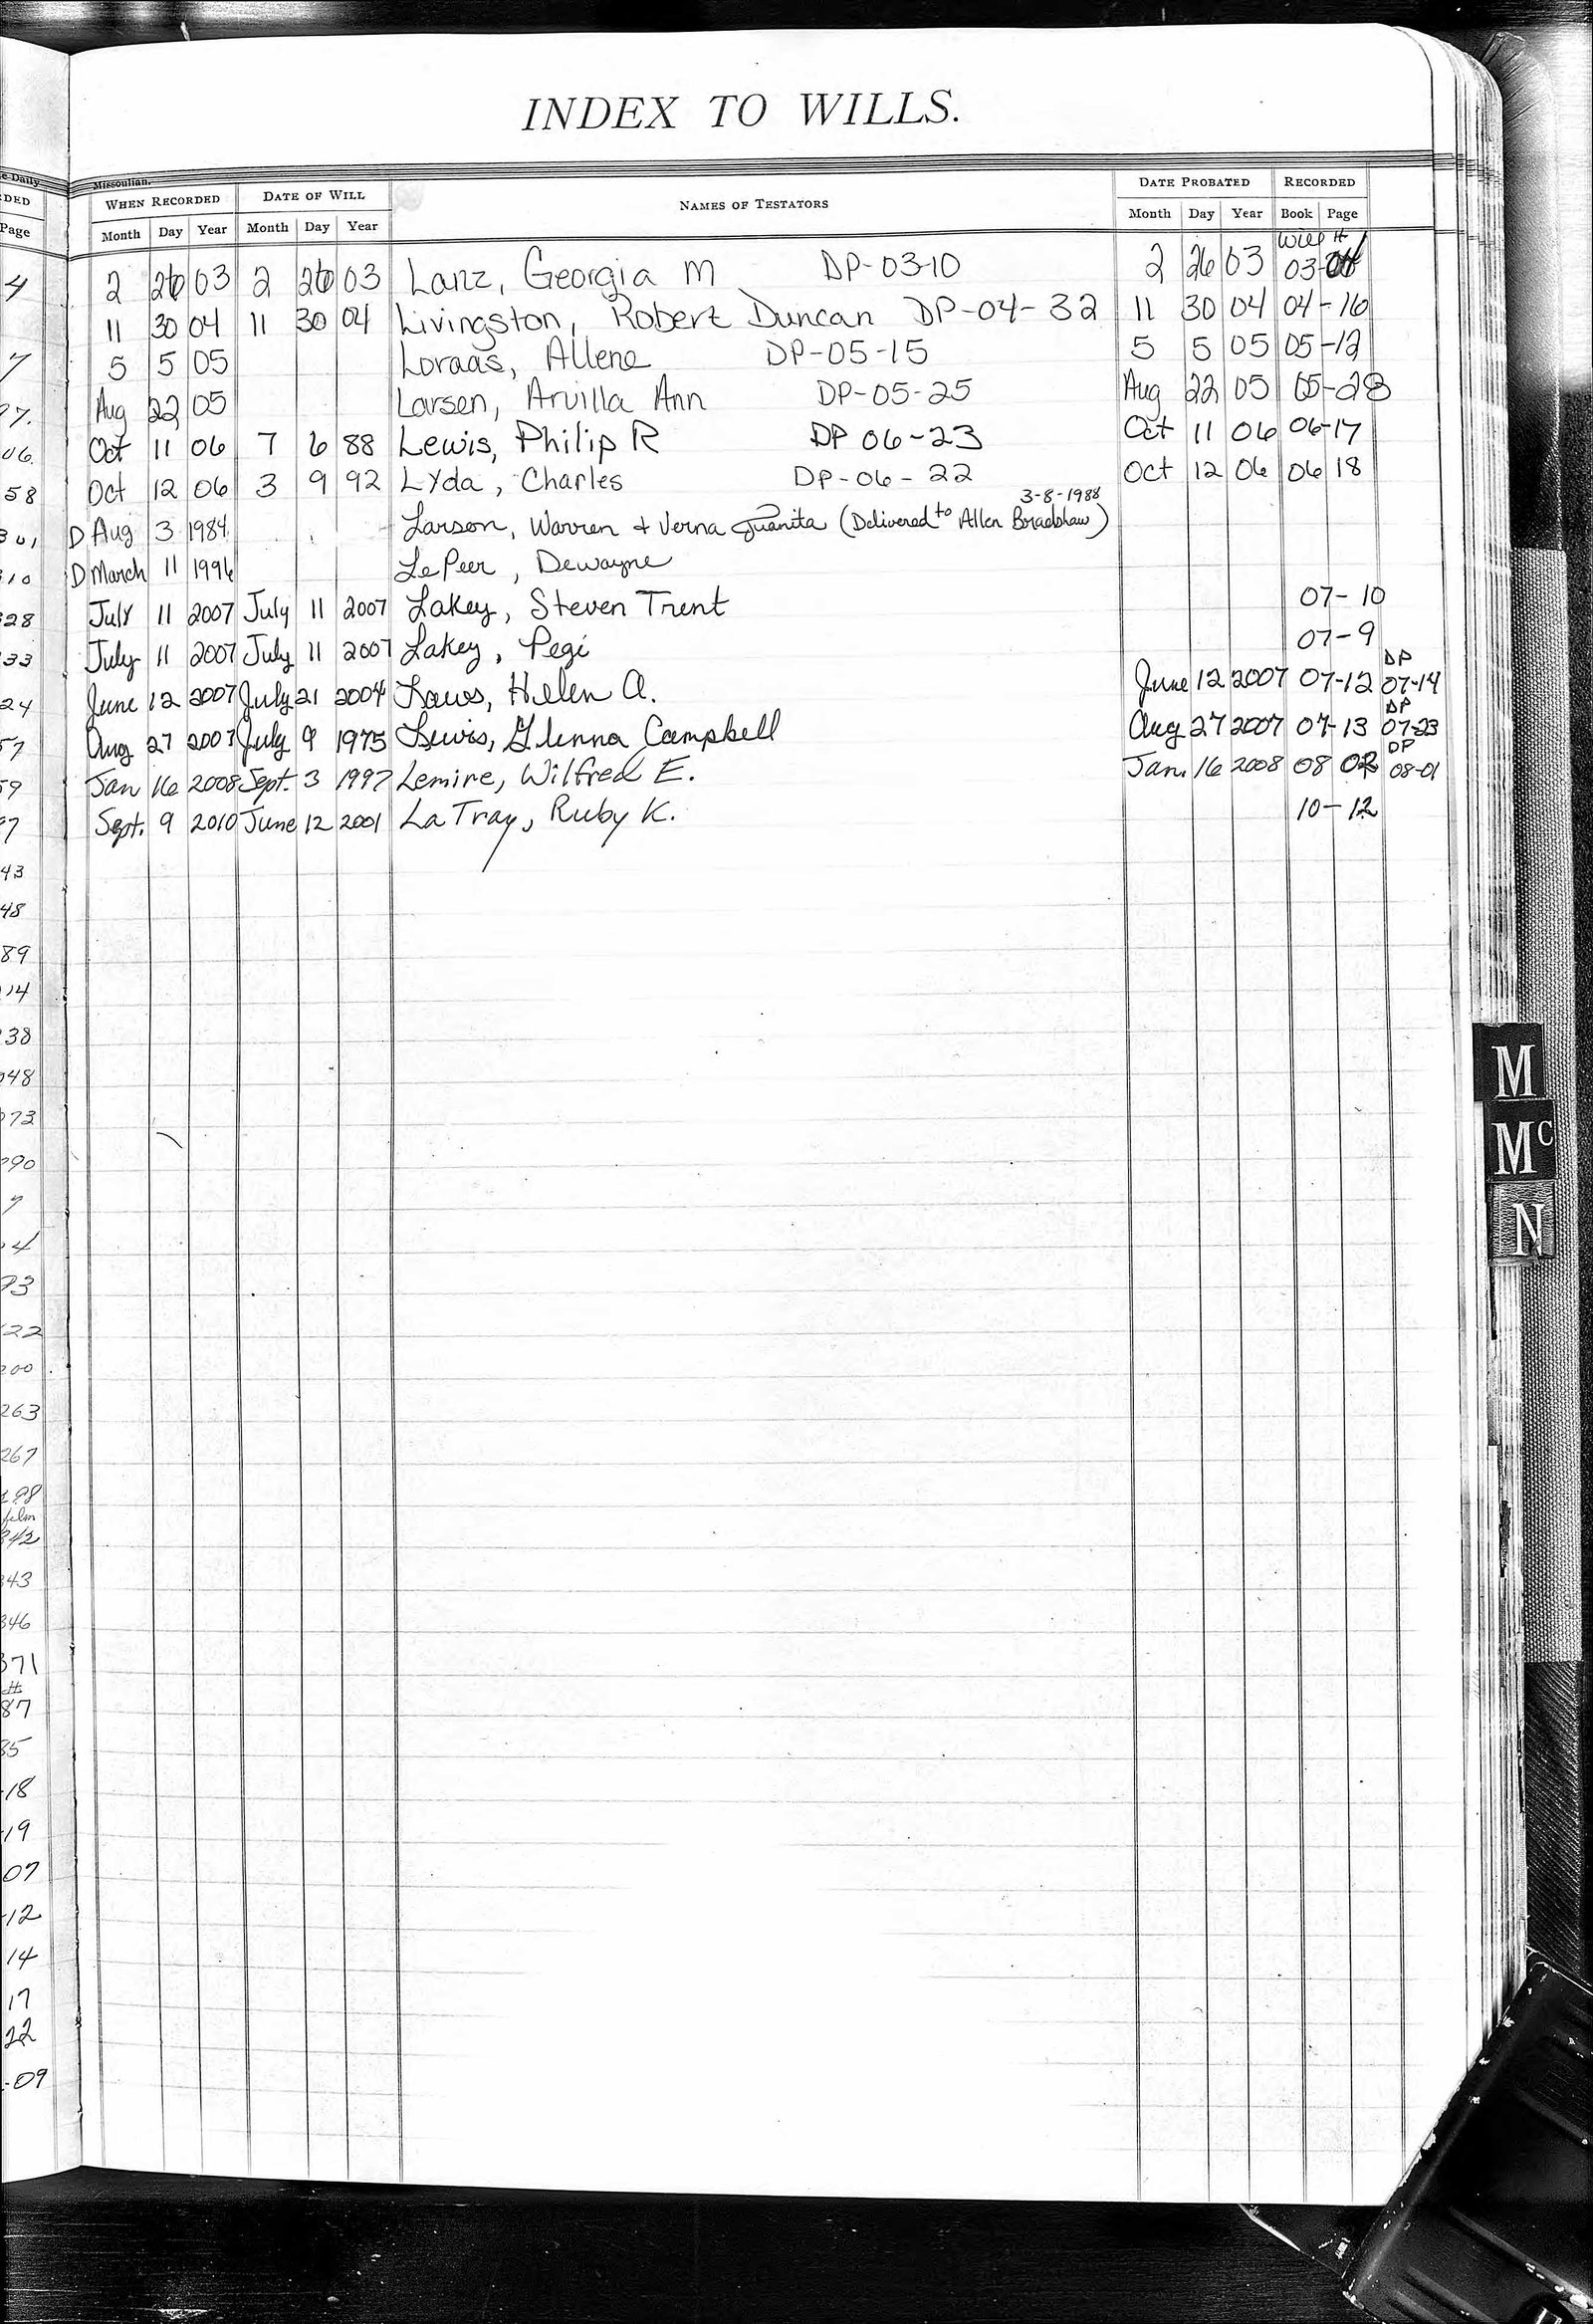 INDEX TO WILLS.
Missoulian.
WHEN RECORDED DATE OF WILL NAMES OF TESTATORS DATE PROBATED RECORDED
Month Day Year Month Day Year Month Day Year Book Page
Will #
2 26 03 2 26 03 Lanz, Georgia M DP-03-10 2 26 03 03-
11 30 04 11 30 04 Livingston, Robert Duncan DP-04-32 11 30 04 04-16
5 5 05 Loraas, Allene DP-05-15 5 5 05 05-12
Aug 22 05 Larsen, Arvilla Ann DP-05-25 Aug 22 05 05-23
Oct 11 06 7 6 88 Lewis, Philip R DP 06-23 Oct 11 06 06-17
Oct 12 06 3 9 92 Lyda, Charles DP-06-22 Oct 12 06 06 18
3-8-1988
D Aug 3 1984 Larson, Warren & Verna Juanita (Delivered to Allen Bradshaw)
D March 11 1996 LePeer, Dewayne
July 11 2007 July 11 2007 Lakey, Steven Trent 07-10
July 11 2007 July 11 2007 Lakey, Pegi 07-9
DP
June 12 2007 July 21 2004 Laws, Helen A. June 12 2007 07-12 07-14
DP
Aug 27 2007 July 9 1975 Lewis, Glenna Campbell Aug 27 2007 07-13 07-23
DP
Jan 16 2008 Sept. 3 1997 Lemire, Wilfred E. Jan. 16 2008 08 02 08-01
Sept. 9 2010 June 12 2001 LaTray, Ruby K. 10-12
M
Mc
N